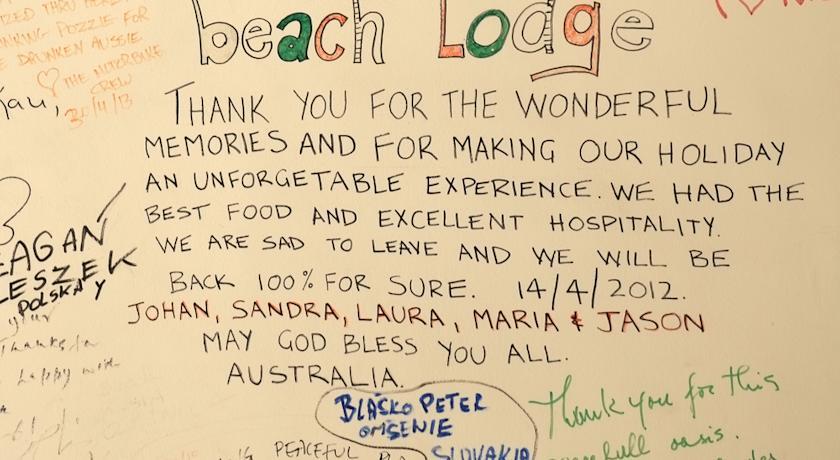 beach Lodge
THE MOTORBIKE
CREW
30/11/13
THANK YOU FOR THE WONDERFUL
MEMORIES AND FOR MAKING OUR HOLIDAY
AN UNFORGETABLE EXPERIENCE. WE HAD THE
BEST FOOD AND EXCELLENT HOSPITALITY.
WE ARE SAD TO LEAVE AND WE WILL BE
BACK 100% FOR SURE. 14/4/2012.
JOHAN, SANDRA, LAURA, MARIA & JASON
MAY GOD BLESS YOU ALL.
AUSTRALIA.
LESZEK
POLSKA
BLAŠKO PETER
OMŠENIE
SLOVAKIA
Thank you for this
oasis.
PEACEFUL